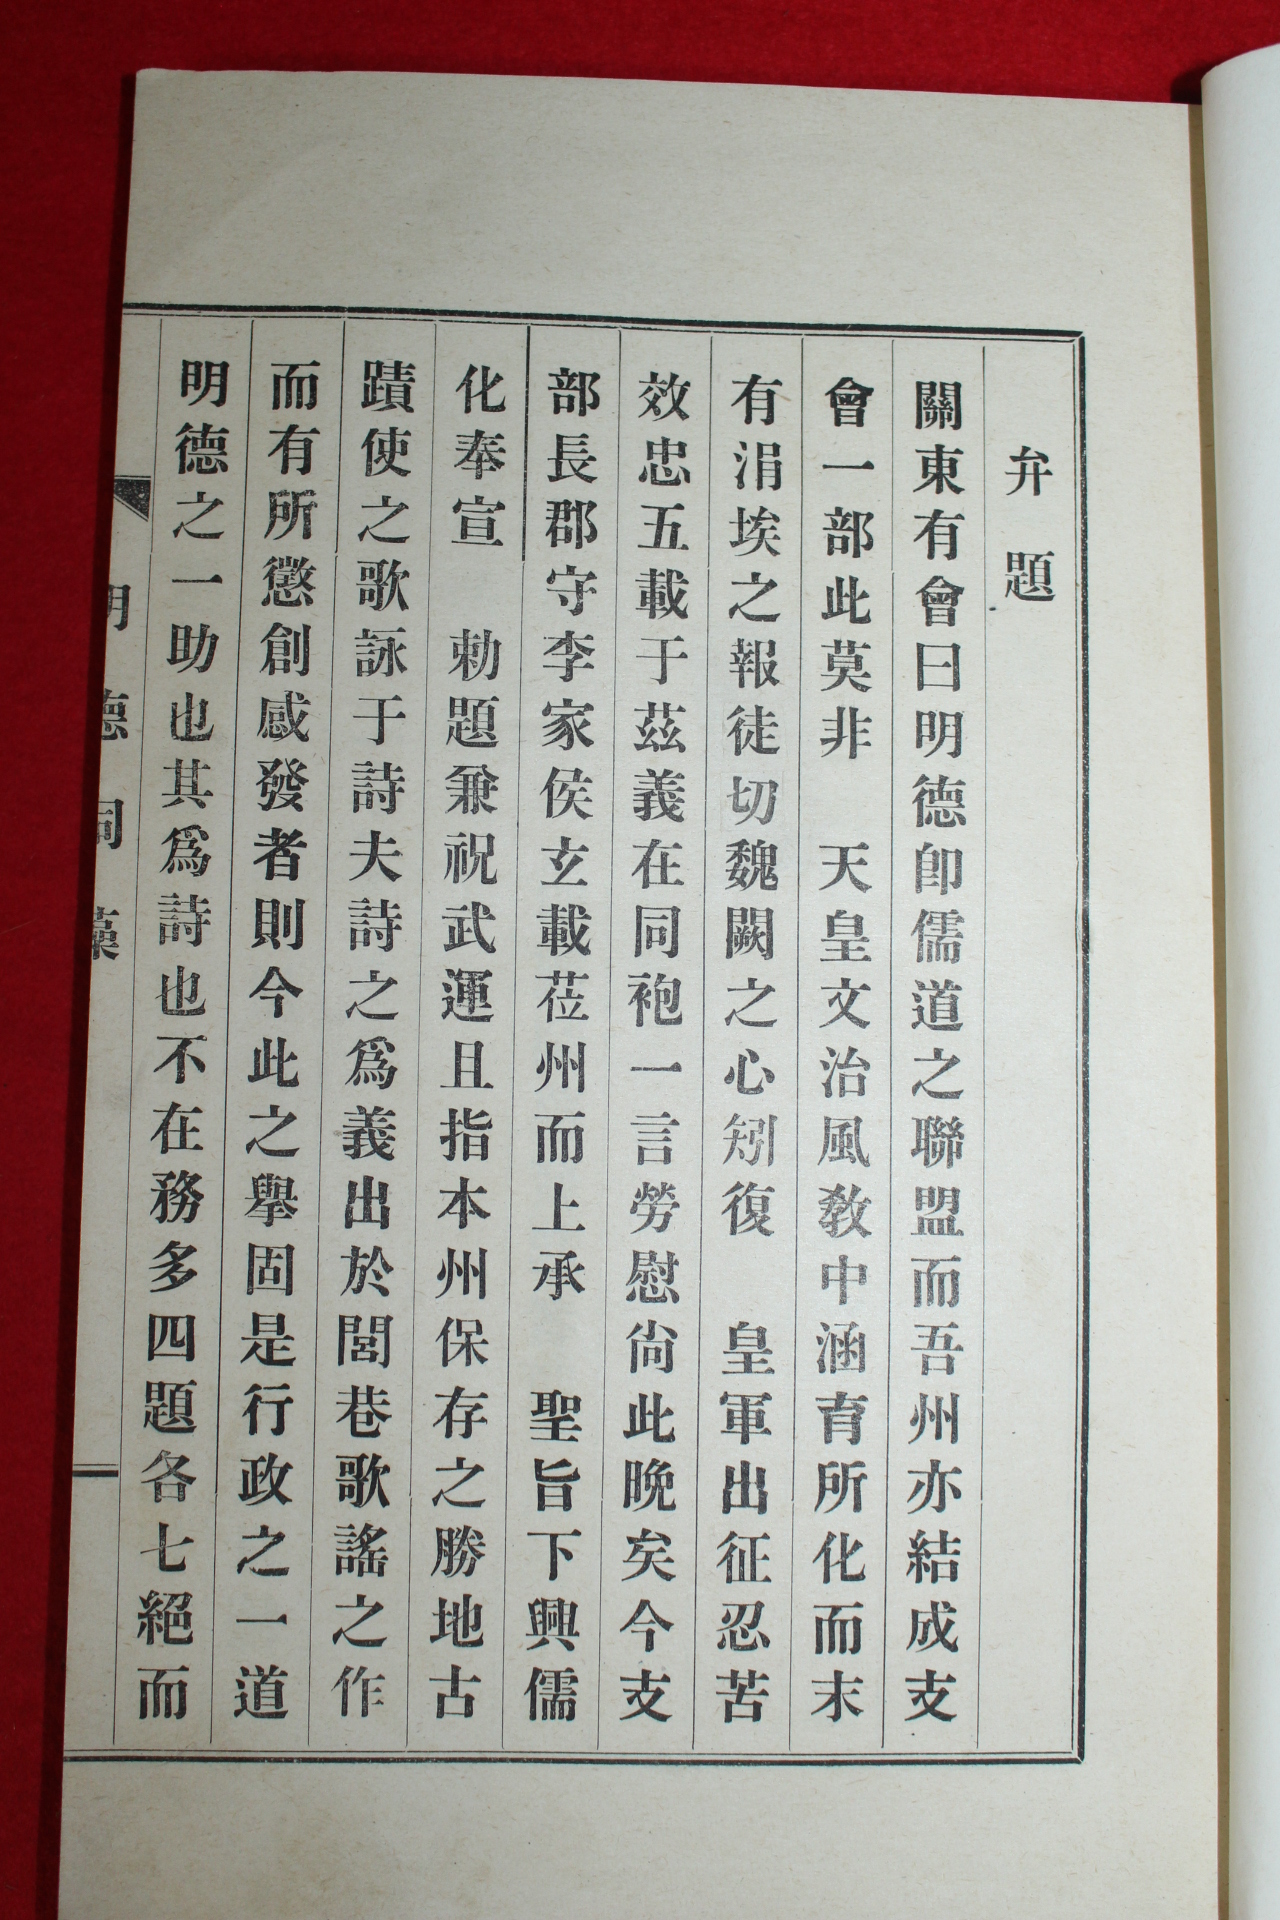 弁題
關東有會曰明德卽儒道之聯盟而吾州亦結成支
會一部此莫非　天皇文治風敎中涵育所化而末
有涓埃之報徒切魏闕之心矧復　皇軍出征忍苦
效忠五載于茲義在同袍一言勞慰尙此晚矣今支
部長郡守李家侯玄載莅州而上承　聖旨下興儒
化奉宣　勅題兼祝武運且指本州保存之勝地古
蹟使之歌詠于詩夫詩之爲義出於閭巷歌謠之作
而有所懲創感發者則今此之擧固是行政之一道
明德之一助也其爲詩也不在務多四題各七絕而
明德詞藁